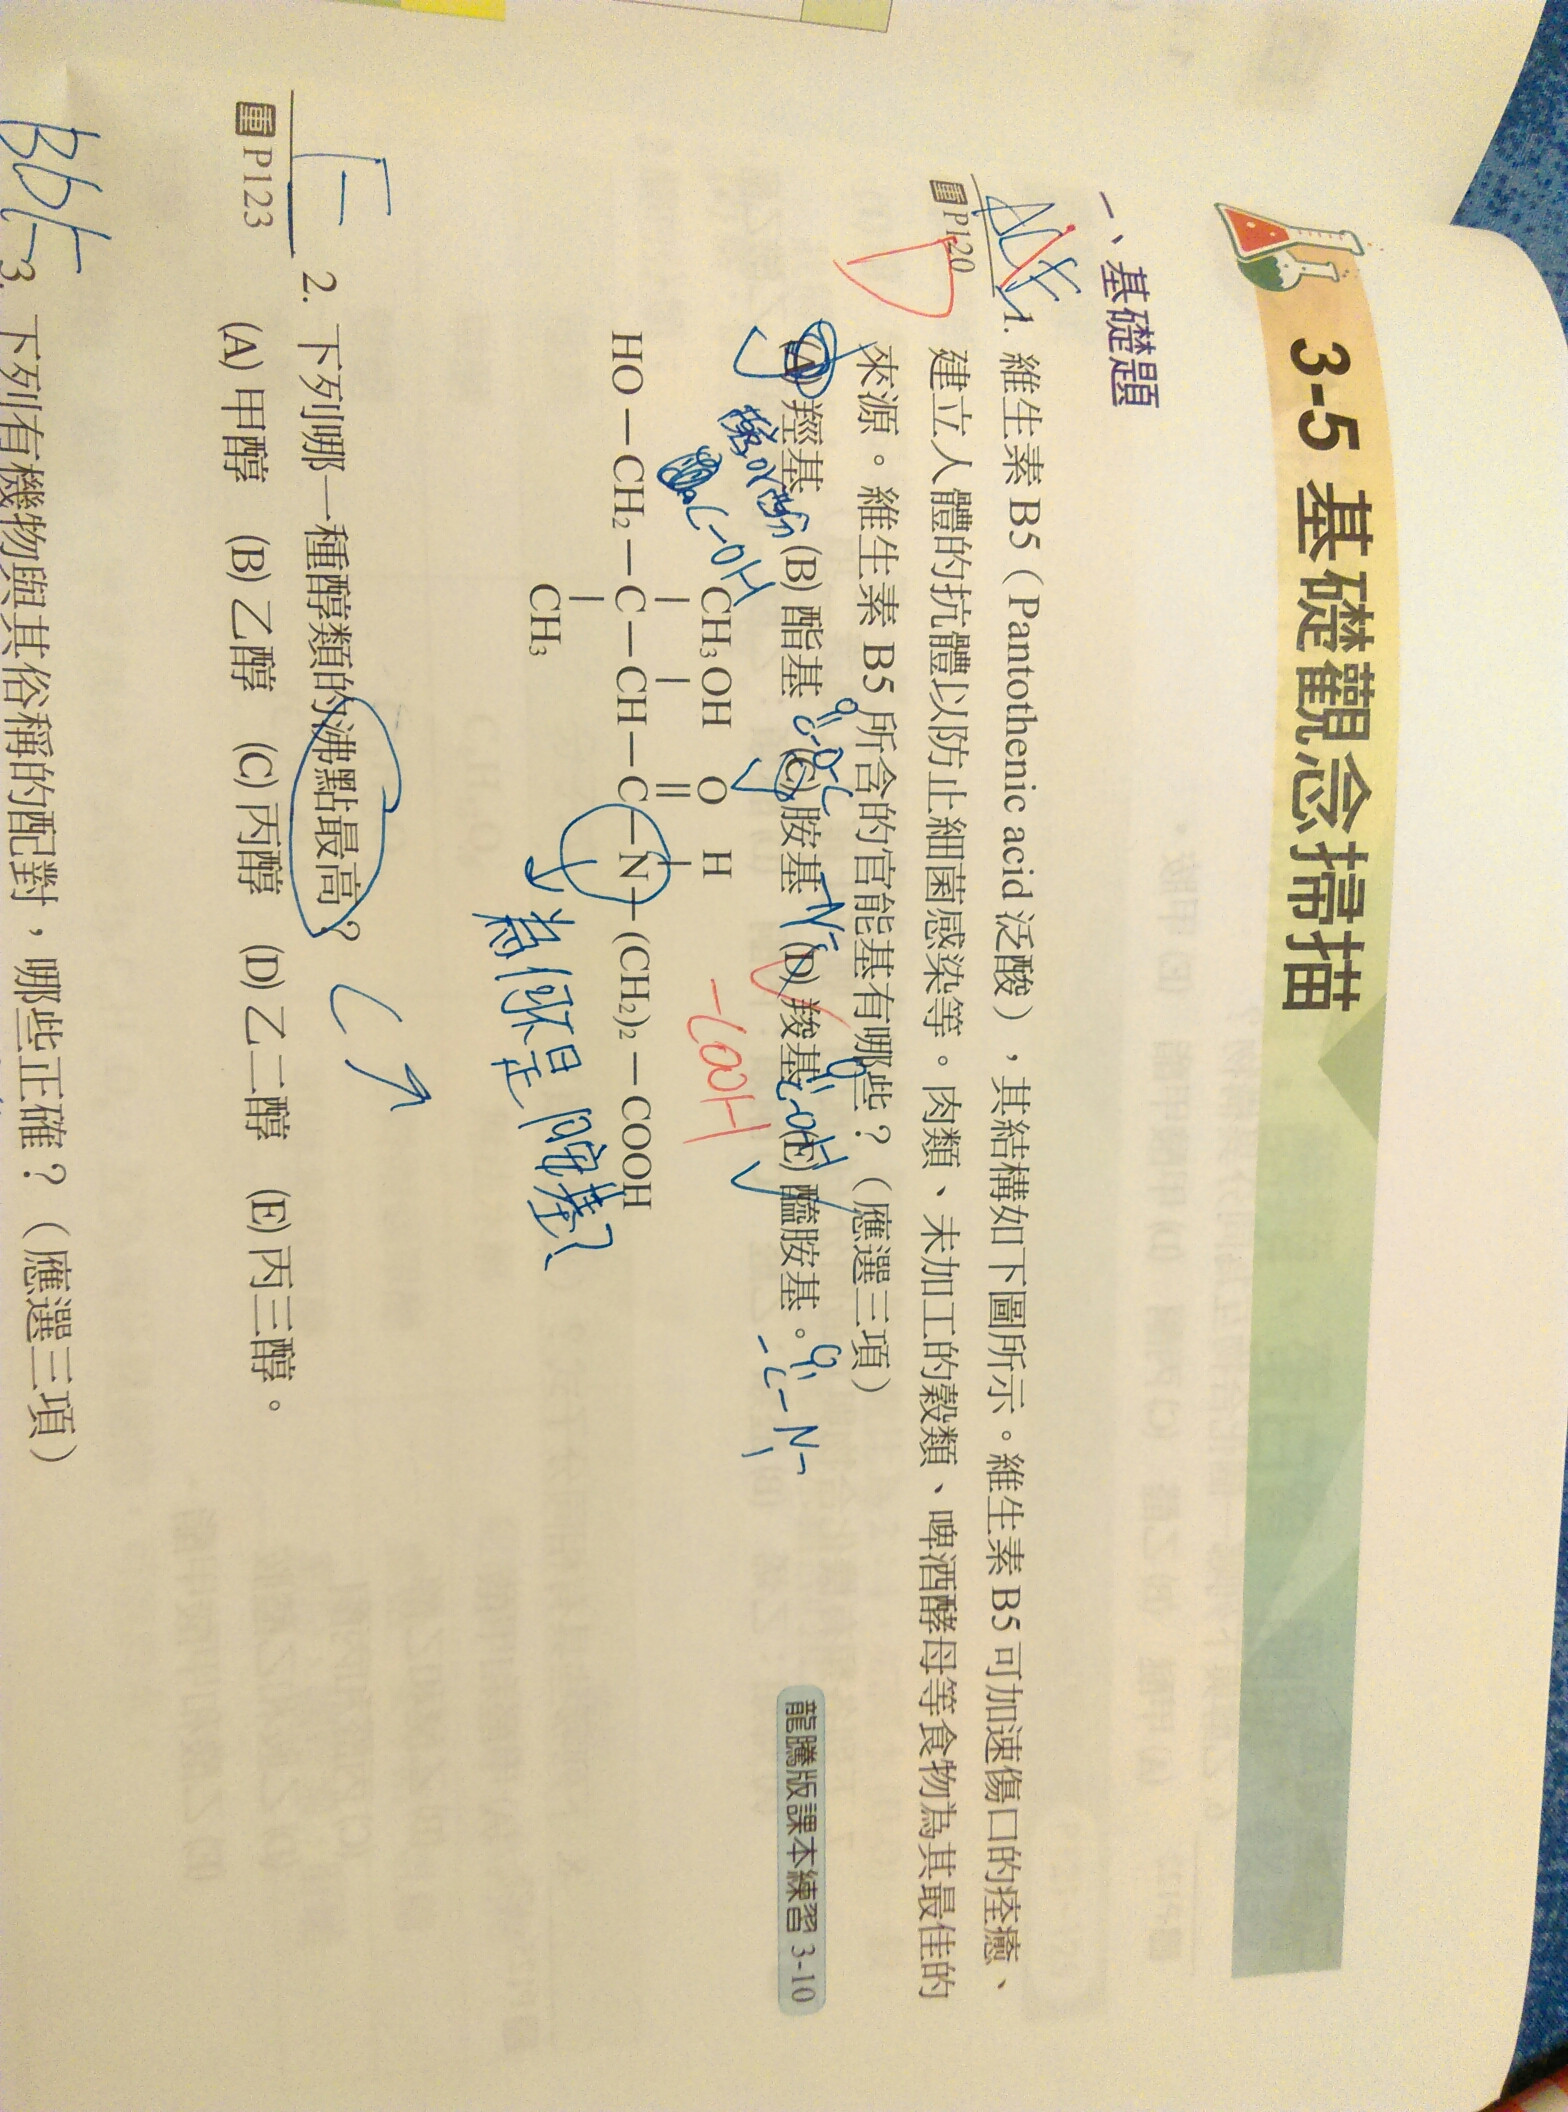 3-5 基礎觀念掃描
一、基礎題
1. 維生素 B5（Pantothenic acid 泛酸），其結構如下圖所示。維生素 B5 可加速傷口的痊癒、
P120
建立人體的抗體以防止細菌感染等。肉類、未加工的穀類、啤酒酵母等食物為其最佳的
來源。維生素 B5 所含的官能基有哪些？（應選三項）
(A) 羥基 (B) 酯基 (C) 胺基 (D) 羧基 (E) 醯胺基。
龍騰版課本練習 3-10
C-OH
-COOH
CH₃ OH O H
HO－CH₂－C－CH－C－N－(CH₂)₂－COOH
CH₃
為何不是胺基？
E
2. 下列哪一種醇類的沸點最高？ C↑
P123
(A) 甲醇 (B) 乙醇 (C) 丙醇 (D) 乙二醇 (E) 丙三醇。
3. 下列有機物與其俗稱的配對，哪些正確？（應選三項）